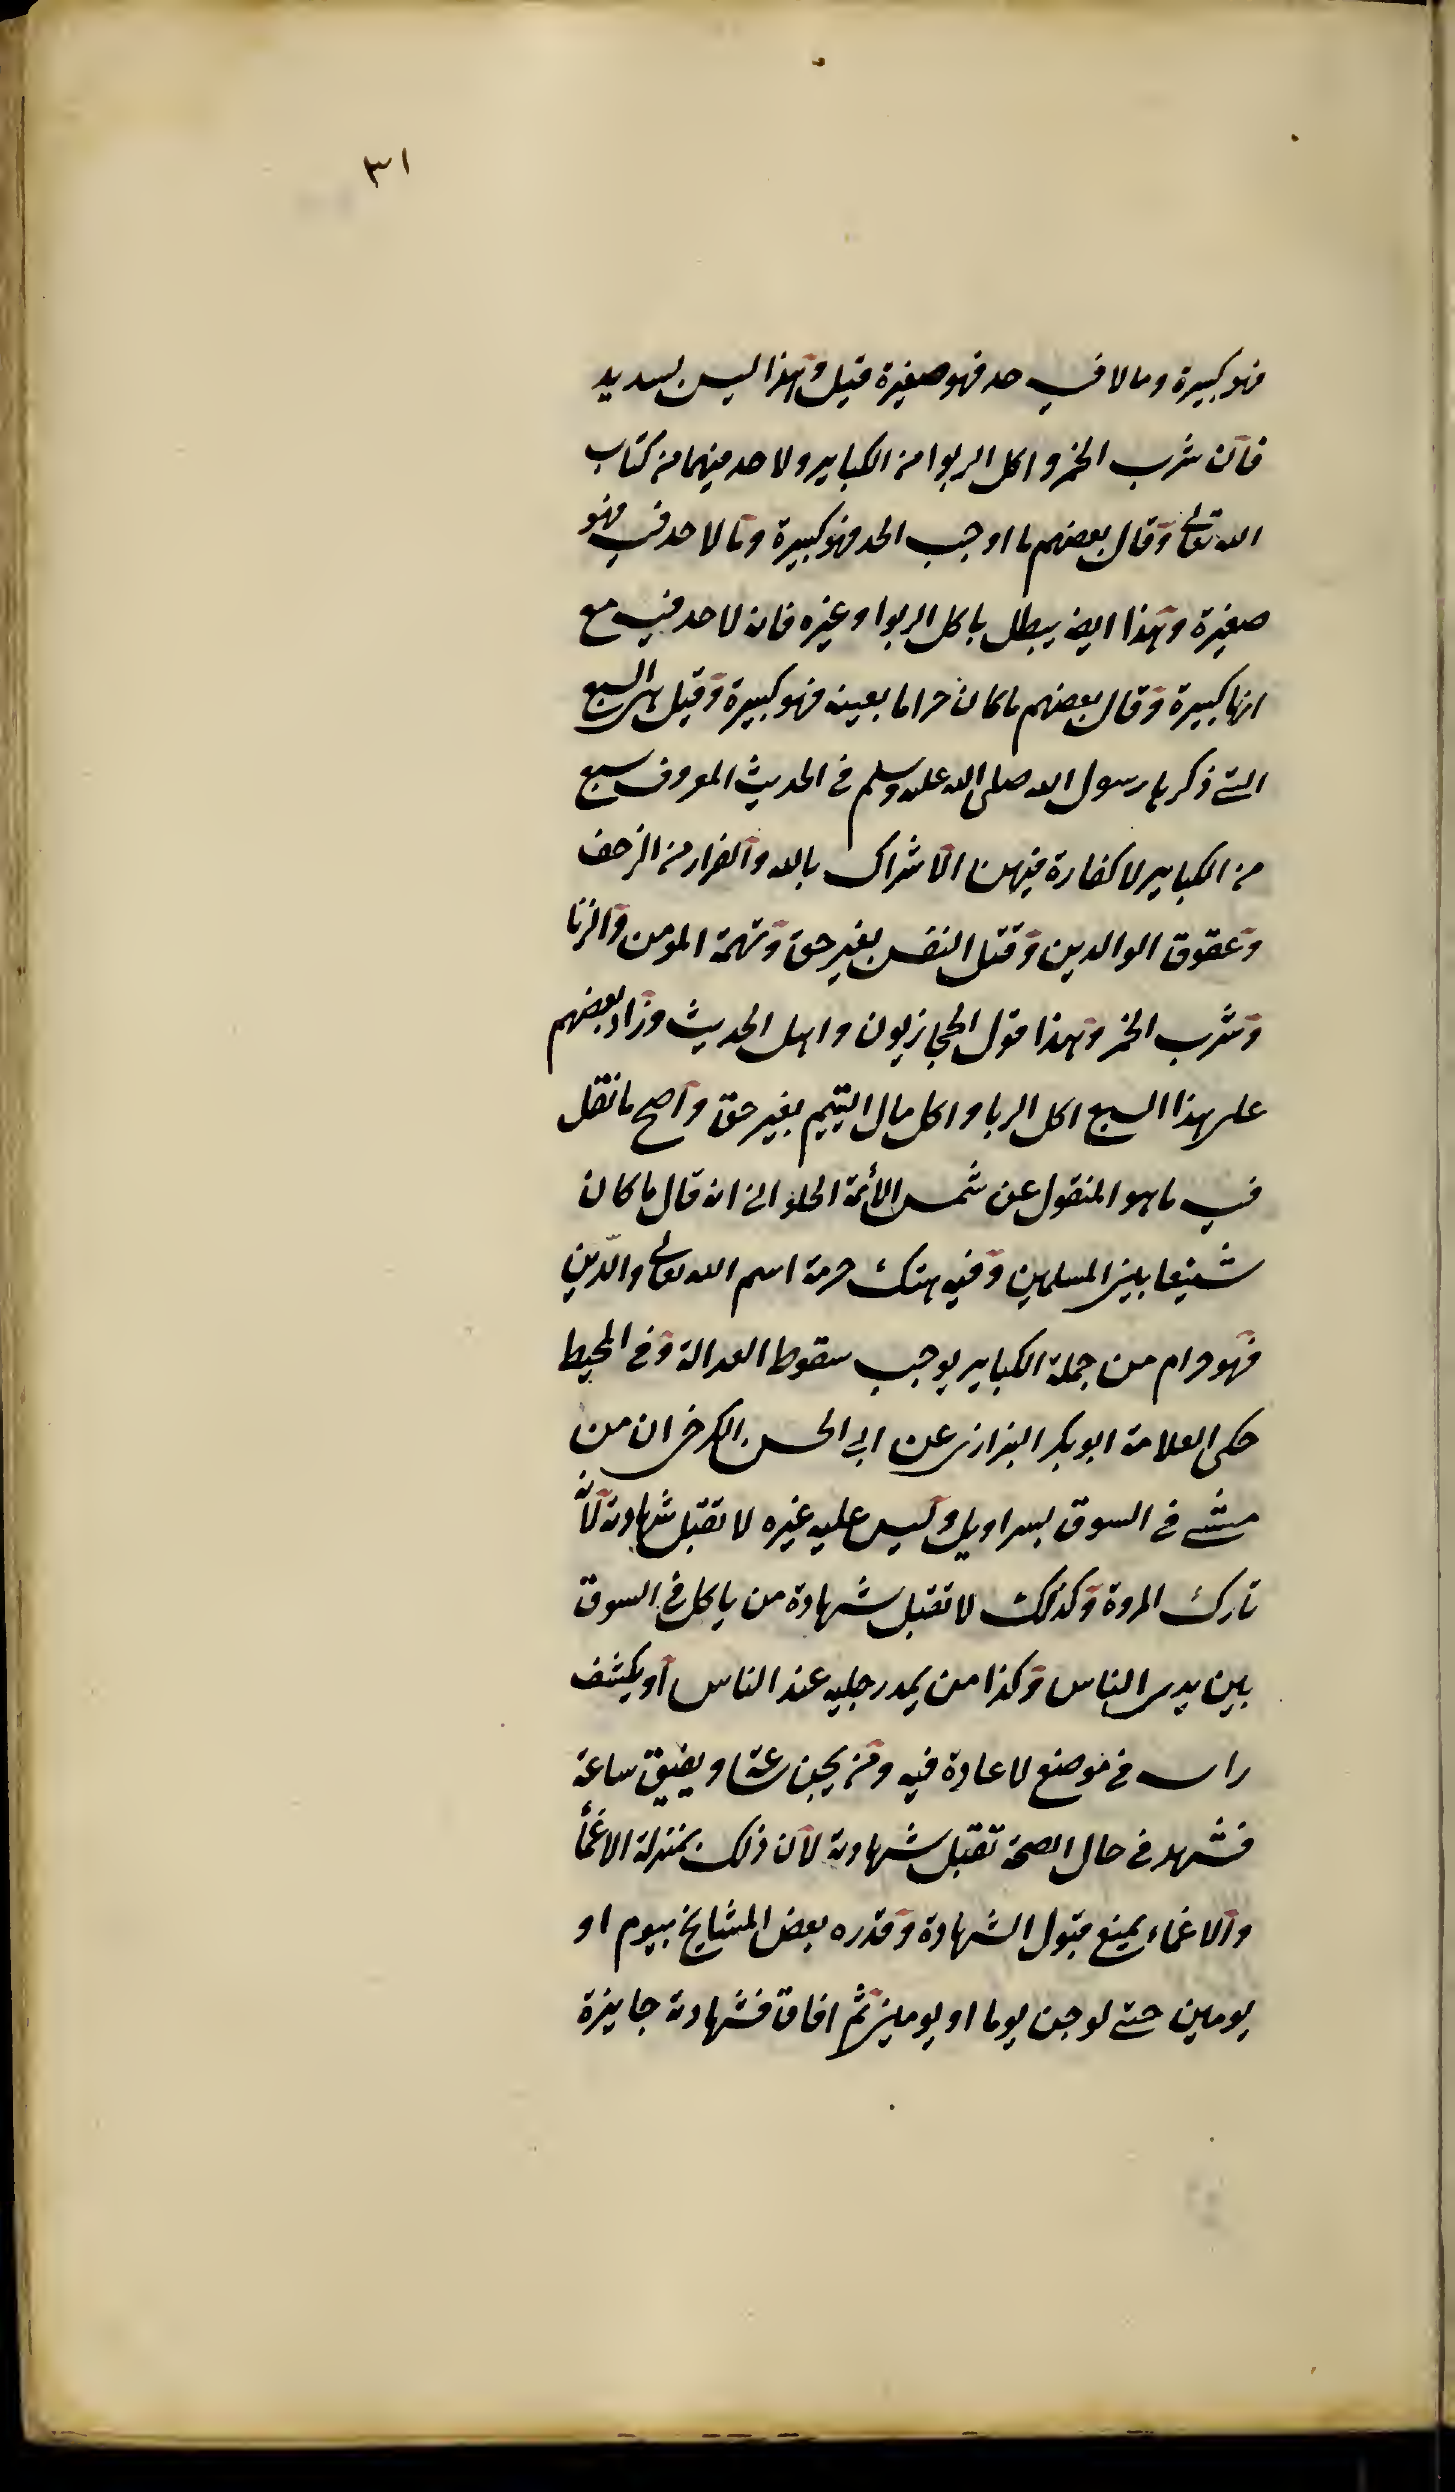 ٣١
فهو كبيرة وما لا فيه حد فهو صغيرة قيل وهذا ليس بسديد
فان شرب الخمر واكل الربوا من الكباير ولا حد فيهما من كتاب
الله تعالى وقال بعضهم ما اوجب الحد فهو كبيرة وما لا حد فيه فهو
صغيرة وهذا ايض يبطل باكل الربوا وغيره فانه لا حد فيه مع
انها كبيرة وقال بعضهم ما كان حراما بعينه فهو كبيرة وقيل هى السبع
التي ذكرها رسول الله صلى الله عليه وسلم في الحديث المعروف سبع
من الكباير لا كفارة فيهن الاشراك بالله والفرار من الزحف
وعقوق الوالدين وقتل النفس بغير حق وتهمة المؤمن والزنا
وشرب الخمر وهذا قول الحجازيون واهل الحديث وزاد بعضهم
على هذا السبع اكل الربا واكل مال اليتيم بغير حق واصح ما نقل
فيه ما هو المنقول عن شمس الأئمة الحلوانى انه قال ما كان
شنيعا بين المسلمين وفيه هتك حرمة اسم الله تعالى والدّين
فهو حرام من جملة الكباير يوجب سقوط العدالة وفي المحيط
حكى العلامة ابو بكر البزازى عن ابي الحسن الكرخى ان من
مشى في السوق بسراويل وليس عليه غيره لا تقبل شهادته لأنه
تارك المروة وكذلك لا تقبل شهادة من ياكل في السوق
بين يدى الناس وكذا من يمد رجليه عند الناس او يكشف
راسه في موضع لا عادة فيه ومن يجن ساعة ويفيق ساعة
فشهد في حال الصحة تقبل شهادته لان ذلك بمنزلة الاغمأ
والاغماء يمنع قبول الشهادة وقدره بعض المشايخ بيوم او
يومين حتى لو جن يوما او يومين ثم افاق فشهادته جايزة